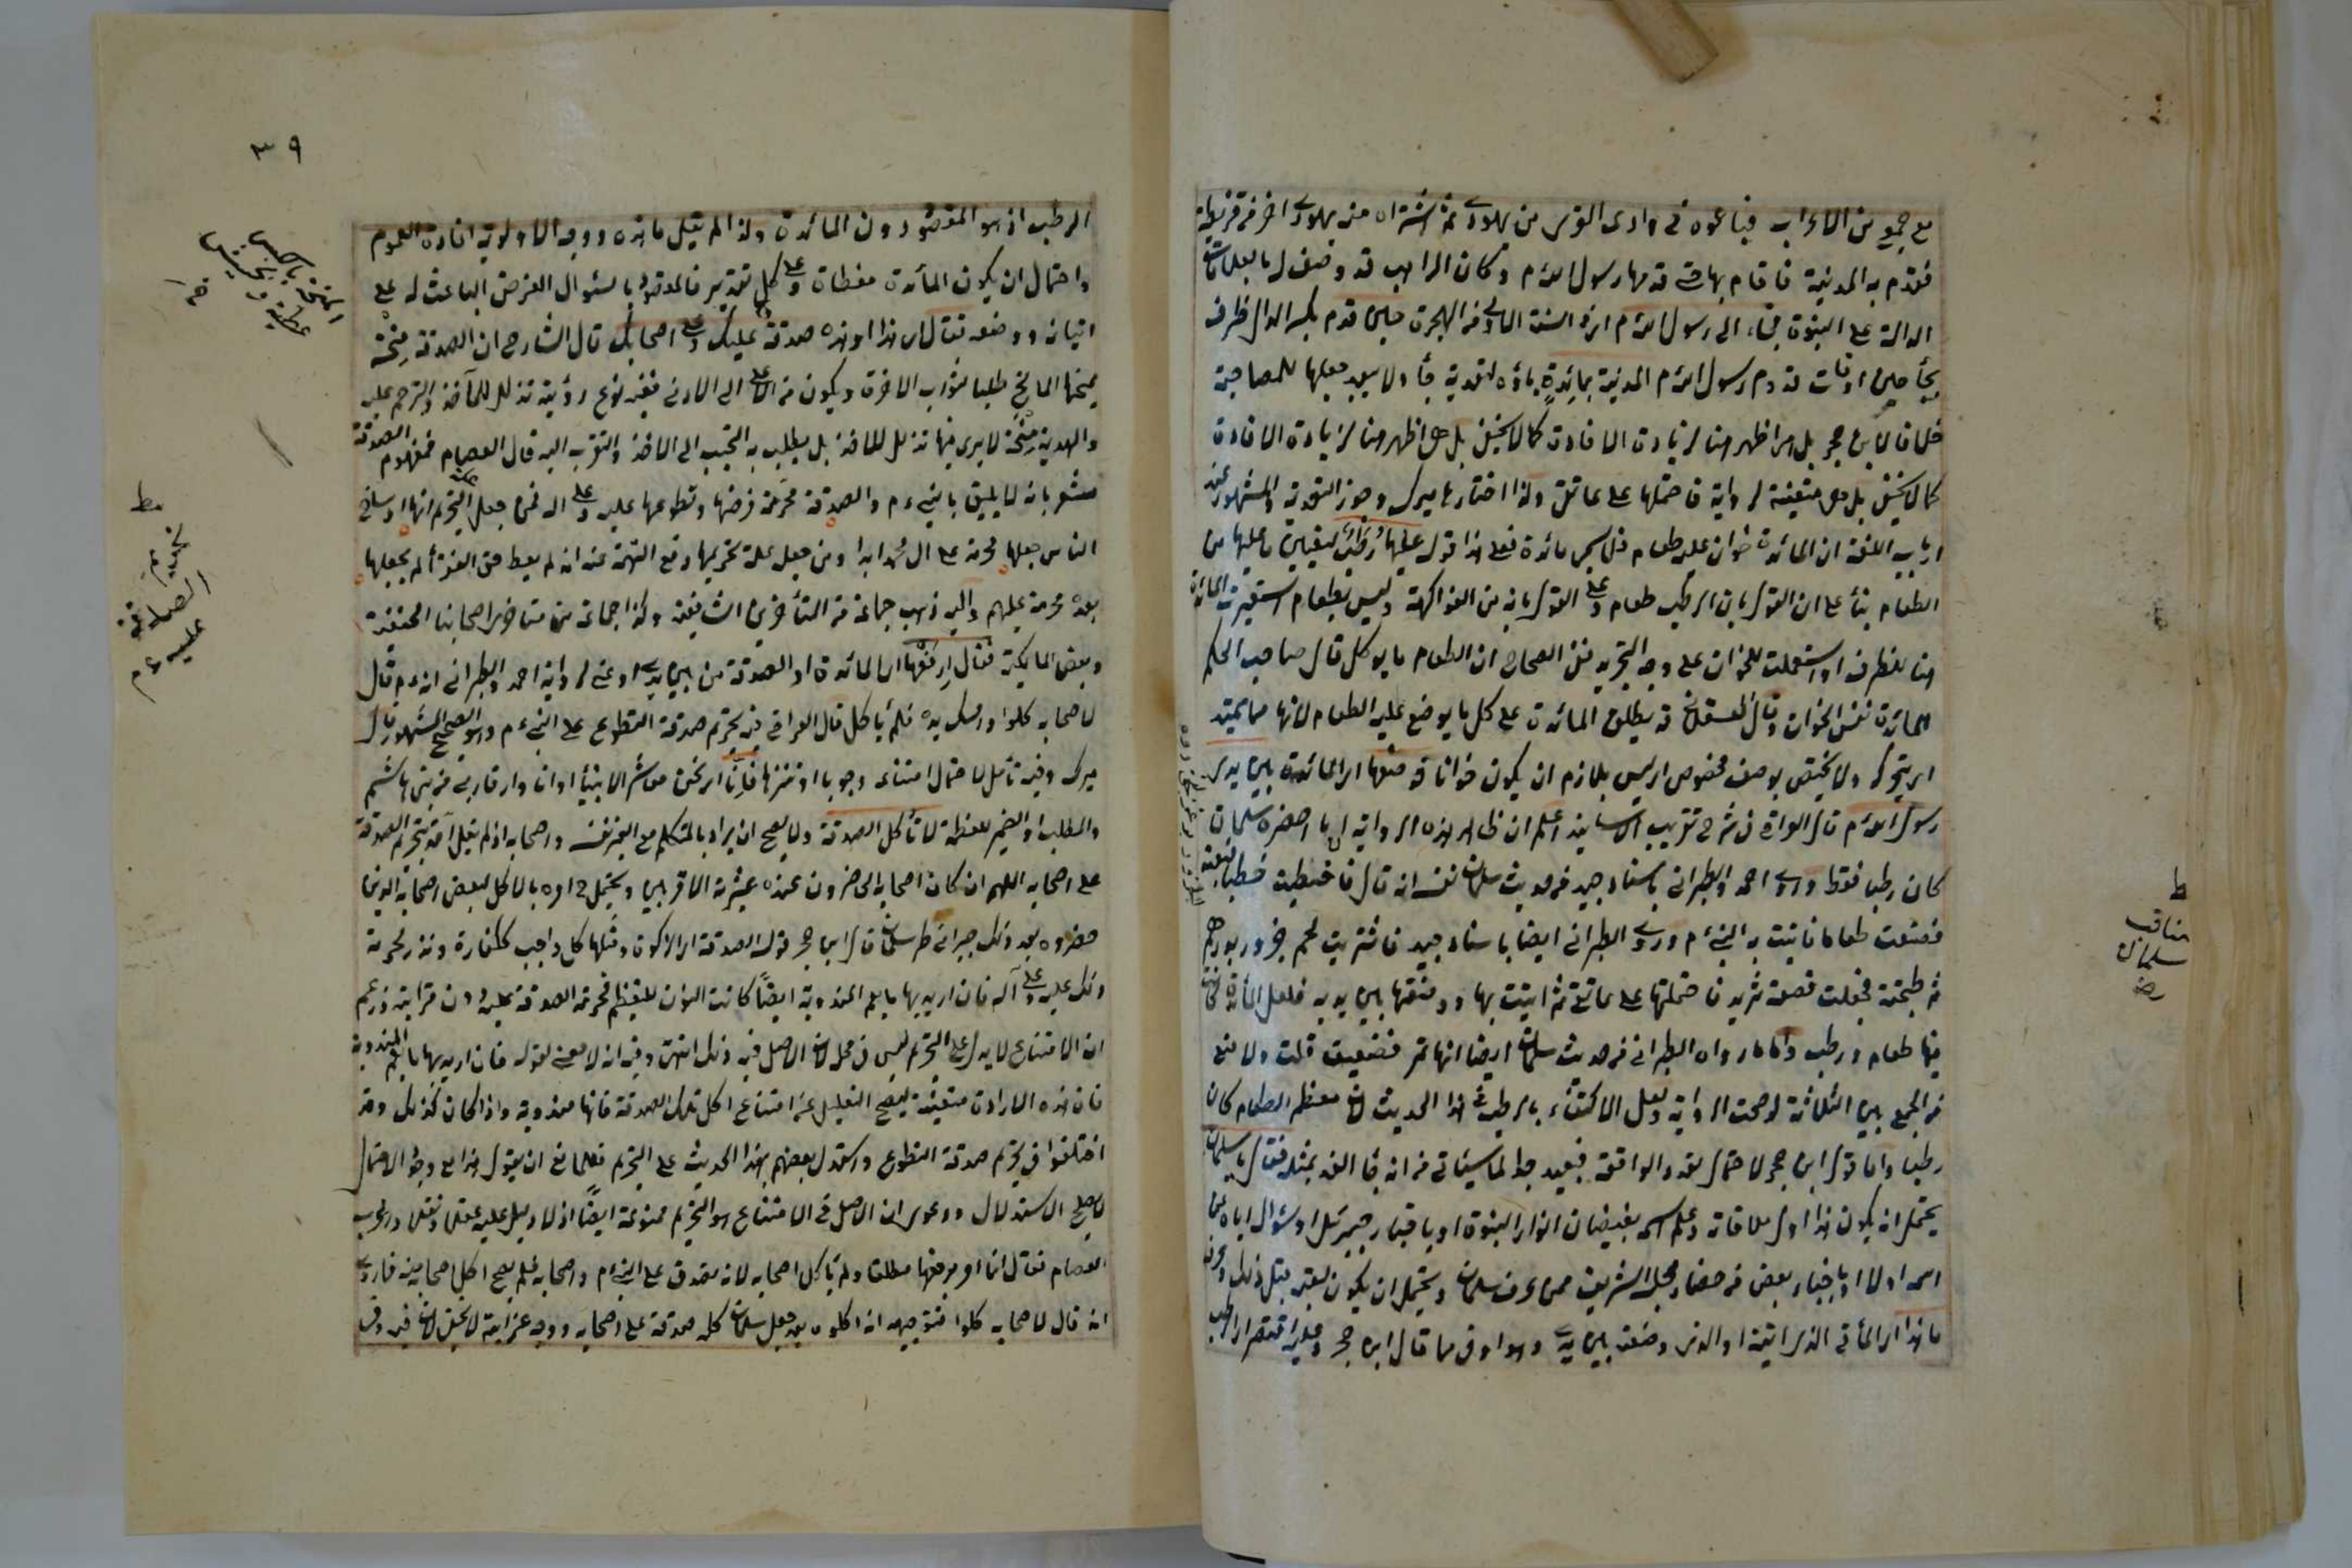 مع جمع من الاعراب فباعوه فى وادى القرى من يهودى ثم اشتراه منه يهودى اخر من قريظة
فقدم به المدينة فاقام بها حتى قدمها رسول الله م وكان الراهب قد وصف له بالعلامات
الدالة على النبوة فجاء الى رسول الله م اى فى السنة الاولى من الهجرة حين قدم بكسر الدال ظرف
لجاء حين اوقات قدوم رسول الله م المدينة بمائدة باؤه لتعدية جاء ولا يبعد جعلها للمصاحبة
خلافا لابن حجر بل هو اظهر هنا لزيادة الافادة
كما لا يخفى بل هى متعينة لرواية فاحتملتها على عاتقى ولذا اختارها ميرك وجوز التعدية والمشهور عند
ارباب اللغة ان المائدة خوان عليه طعام فلا يسمى مائدة فعلى هذا قوله عليها رطب لتعيين ما عليها من
الطعام بناء على ان القول بان الرطب طعام وعلى القول بانه من الفواكهة وليس بطعام استعيرت المائدة
هنا للظرف او استعملت للخوان على وجه التجريد ففى الصحاح ان الطعام ما يوكل قال صاحب المحكم
المائدة نفس الخوان وقال العسقلانى قد يطلق المائدة على كل ما يوضع عليه الطعام لانها مما يميد
اى يتحرك ولا يختص بوصف مخصوص اى ليس بلازم ان يكون خوانا فوضعها اى المائدة بين يدى
رسول الله م قال العراقى فى شرح تقريب الاسانيد اعلم ان ظاهر هذه الرواية ان ما احضره سلمان
كان رطبا فقط وروى احمد والطبرانى باسناد جيد من حديث سلمان نفسه انه قال فاحتطبت حطبا فبعته
فصنعت طعاما فاتيت به النبى م وروى الطبرانى ايضا باسناد جيد فاشتريت لحم جزور بدرهم
ثم طبخته فجعلت قصعة ثريد فاحتملتها على عاتقى ثم اتيت بها ووضعتها بين يديه فلعل المائدة كانت
فيها طعام ورطب واما ما رواه الطبرانى من حديث سلمان ايضا انها تمر فضعيف قلت ولا منع
من الجمع بين الثلاثة لو صحت الرواية ولعل الاكتفاء بالرطب فى هذا الحديث لان معظم الطعام كان
رطبا واما قول ابن حجر لاحتمال تعدد الواقعة فبعيد جدا لما سيأتى من انه جاء الغد بمثله فقال يا سلمان
يحتمل انه يكون هذا اول ملاقاته وعلم اسمه بفيضان انوار النبوة او باخبار جبرئيل او سؤال اياه عن
اسمه اولا او باخبار بعض من حضار مجلسه الشريف ممن عرف سلمان ويحتمل ان يكون لقيه قبل ذلك وعرفه
ما هذا اى المأتى الذى اتيته او الذى وضعته بين يدى وهو اوفق مما قال ابن حجر وغيره مقتصر اى الرطب
ط
مناقب
سلمان
رضى
٣٩
الرطب اذ هو المقصود دون المائدة ولذا لم يقل ما هذه ووجه الاولوية افادة العموم
واحتمال ان يكون المائدة مغطاة وعلى كل تقدير فالمقصود بالسؤال الغرض الباعث له على
اتيانه ووضعه فقال اى هذا او هذه صدقة عليك وعلى اصحابك قال الشارح ان الصدقة منحة
يمنحها المانح طلبا لثواب الاخرة ويكون من الاعلى الى الادنى ففيه نوع رؤية تذلل للآخذ والترحم عليه
والهدية منحة لا يرى فيها تذلل للاخذ بل يطلب به التحبب الى الاخذ والتقرب اليه قال العصام فمفهوم الصدقة
مشعر بانه لا يليق بالنبى ءم والصدقة محرمة فرضها وتطوعها عليه وعلى اله فمن جعل علة التحريم انها اوساخ
الناس جعلها محرمة على ال محمد ابدا ومن جعل علة تحريمها دفع التهمة عنه انه لم يعط حق الفقراء لم يجعلها
بعده محرمة عليهم واليه ذهب جماعة من المتأخرين الشافعية وكذا جماعة من متاخرى اصحابنا الحنفية
وبعض المالكية فقال ارفعها اى المائدة او الصدقة من بين يدى او عنى لرواية احمد والطبرانى انه ءم قال
لاصحابه كلوا وامسك يده فلم ياكل قال العراقى فيه تحريم صدقة التطوع على النبى ءم وهو الصحيح المشهور قال
ميرك وفيه تأمل لاحتمال امتناعه وجوبا او تنزها فانا اى نحن معاشر الانبياء او انا واقاربى من بنى هاشم
والمطلب او الضمير للعظمة لا تأكل الصدقة ولا يصح ان يراد بالمتكلم مع الغير نفسه واصحابه اذ لم يقل احد بتحريم الصدقة
على اصحابه اللهم ان كان اصحابه الحاضرون عنده عشيرته الاقربين ويحتمل امره بالاكل لبعض اصحابه الذين
حضروه بعد ذلك جبرا لخاطر سلمان قال ابن حجر قوله الصدقة اى الزكوة ومثلها كل واجب ككفارة ونذر لحرمة
ذلك عليه وعلى آله فان اريد بها ما يعم المندوبة ايضا كانت النون للتعظيم لحرمة الصدقة عليه دون قرابته وزعم
ان الامتناع لا يدل على التحريم ليس فى محله لان الاصل فيه ذلك انتهى وفيه انه لا معنى لقوله فان اريد بها ما يعم المندوبة
فان هذه الارادة متعينة ليصح التعليل عن امتناع اكل تلك الصدقة فانها مندوبة واذا كان كذلك وقد
اختلفوا فى تحريم صدقة التطوع واستدل بعضهم بهذا الحديث على التحريم فللمانع ان يقول هذا مع وجود الاحتمال
لا يصلح الاستدلال ودعوى ان الاصل فى الامتناع هو التحريم ممنوعة ايضا اذ لا دليل عليه عقلا ونقلا واغرب
العصام فقال انما امر برفعها مطلقا ولم يأكل اصحابه لانه تصدق على النبى م واصحابه فلم يصح اكل اصحابه منه فاروى
انه قال لاصحابه كلوا فتوجيهه انه اكلوه بعد جعل سلمان كله صدقة على اصحابه ووجه غرابته لا يخفى لان فيه وفى
المنحة بالكسر
عطية وبخشش
ط
تحريم
الصدقة
عليه ءم